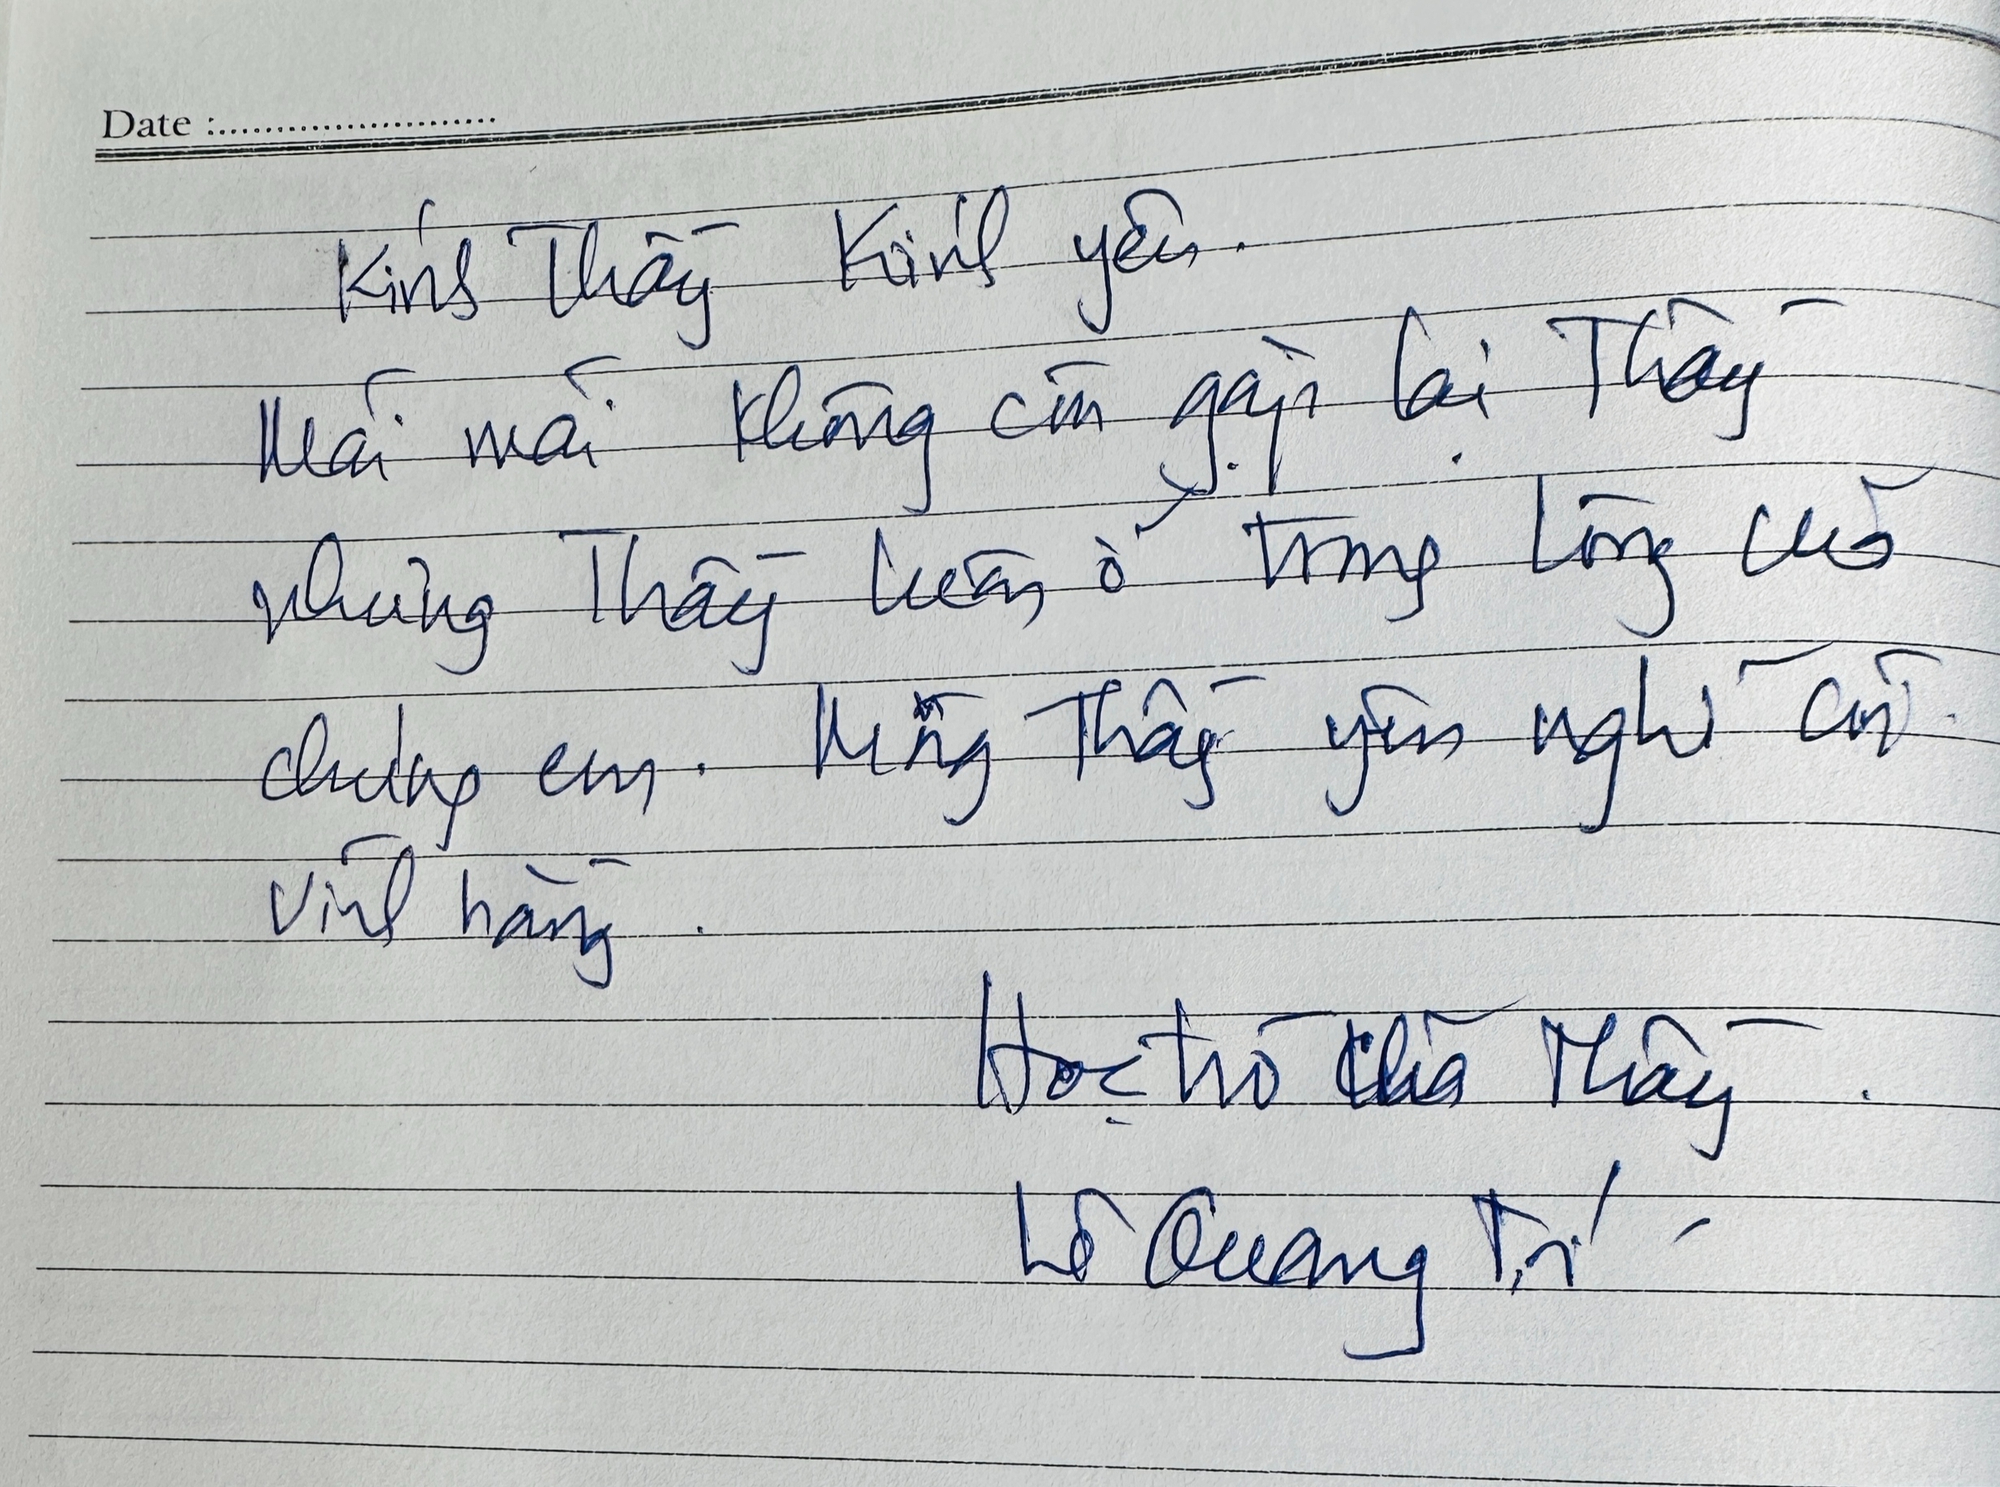 Date :
Kính Thầy Kính yêu.
Mãi mãi không còn gặp lại Thầy
nhưng Thầy luôn ở trong lòng của
chúng em. Mong Thầy yên nghỉ cõi
vĩnh hằng.
Học trò của Thầy.
Lê Quang Trí